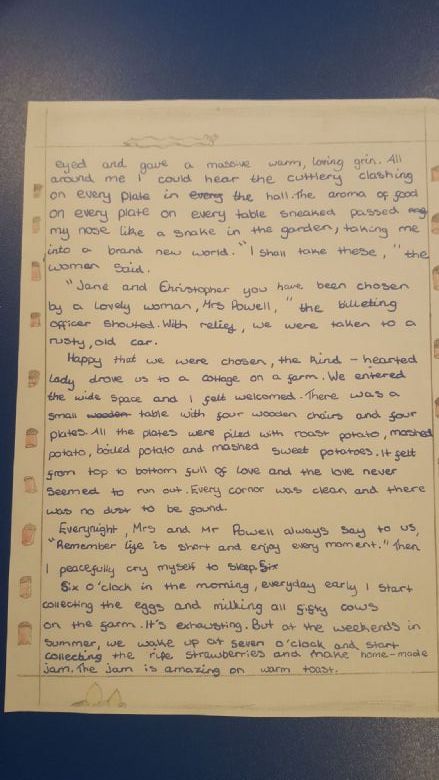 eyed and gave a massive warm, loving grin. All
around me I could hear the cuttlery clashing
on every plate in every the hall. The aroma of food
on every plate on every table sneaked passed my
my nose like a snake in the garden, taking me
into a brand new world. "I shall take these," the
women said.
"Jane and Christopher you have been chosen
by a lovely woman, Mrs Powell," the billeting
officer shouted. With relief, we were taken to a
rusty, old car.
Happy that we were chosen, the kind - hearted
lady drove us to a cottage on a farm. We entered
the wide space and I felt welcomed. There was a
small wooden table with four wooden chairs and four
plates. All the plates were piled with roast potato, mashed
potato, boiled potato and mashed sweet potatoes. It felt
from top to bottom full of love and the love never
seemed to run out. Every cornor was clean and there
was no dust to be found.
Everynight, Mrs and Mr Powell always say to us,
"Remember life is short and enjoy every moment." Then
I peacefully cry myself to sleep. Six
Six o'clock in the morning, everyday early I start
collecting the eggs and milking all fifty cows
on the farm. It's exhausting. But at the weekends in
summer, we wake up at seven o'clock and start
collecting the ripe strawberries and make home-made
jam. The jam is amazing on warm toast.